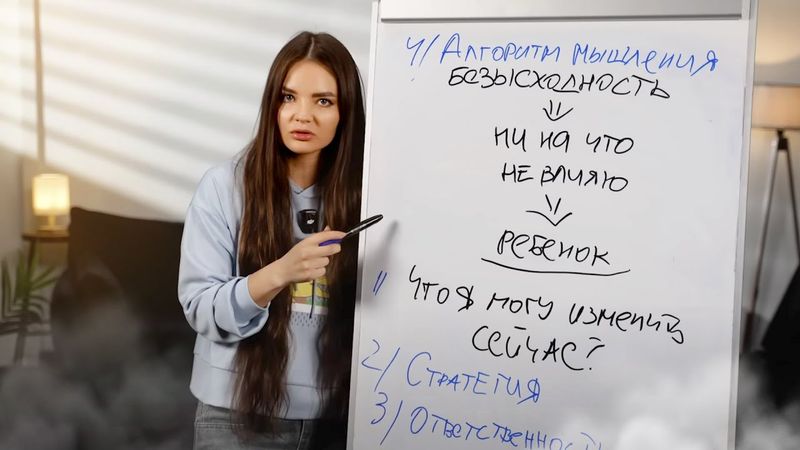 4/ Алгоритм мышления
БЕЗЫСХОДНОСТЬ
НИ НА ЧТО
НЕ ВЛИЯЮ
РЕБЕНОК
1) ЧТО Я МОГУ ИЗМЕНИТЬ
СЕЙЧАС?
2/ СТРАТЕГИЯ
3/ ОТВЕТСТВЕННОСТЬ